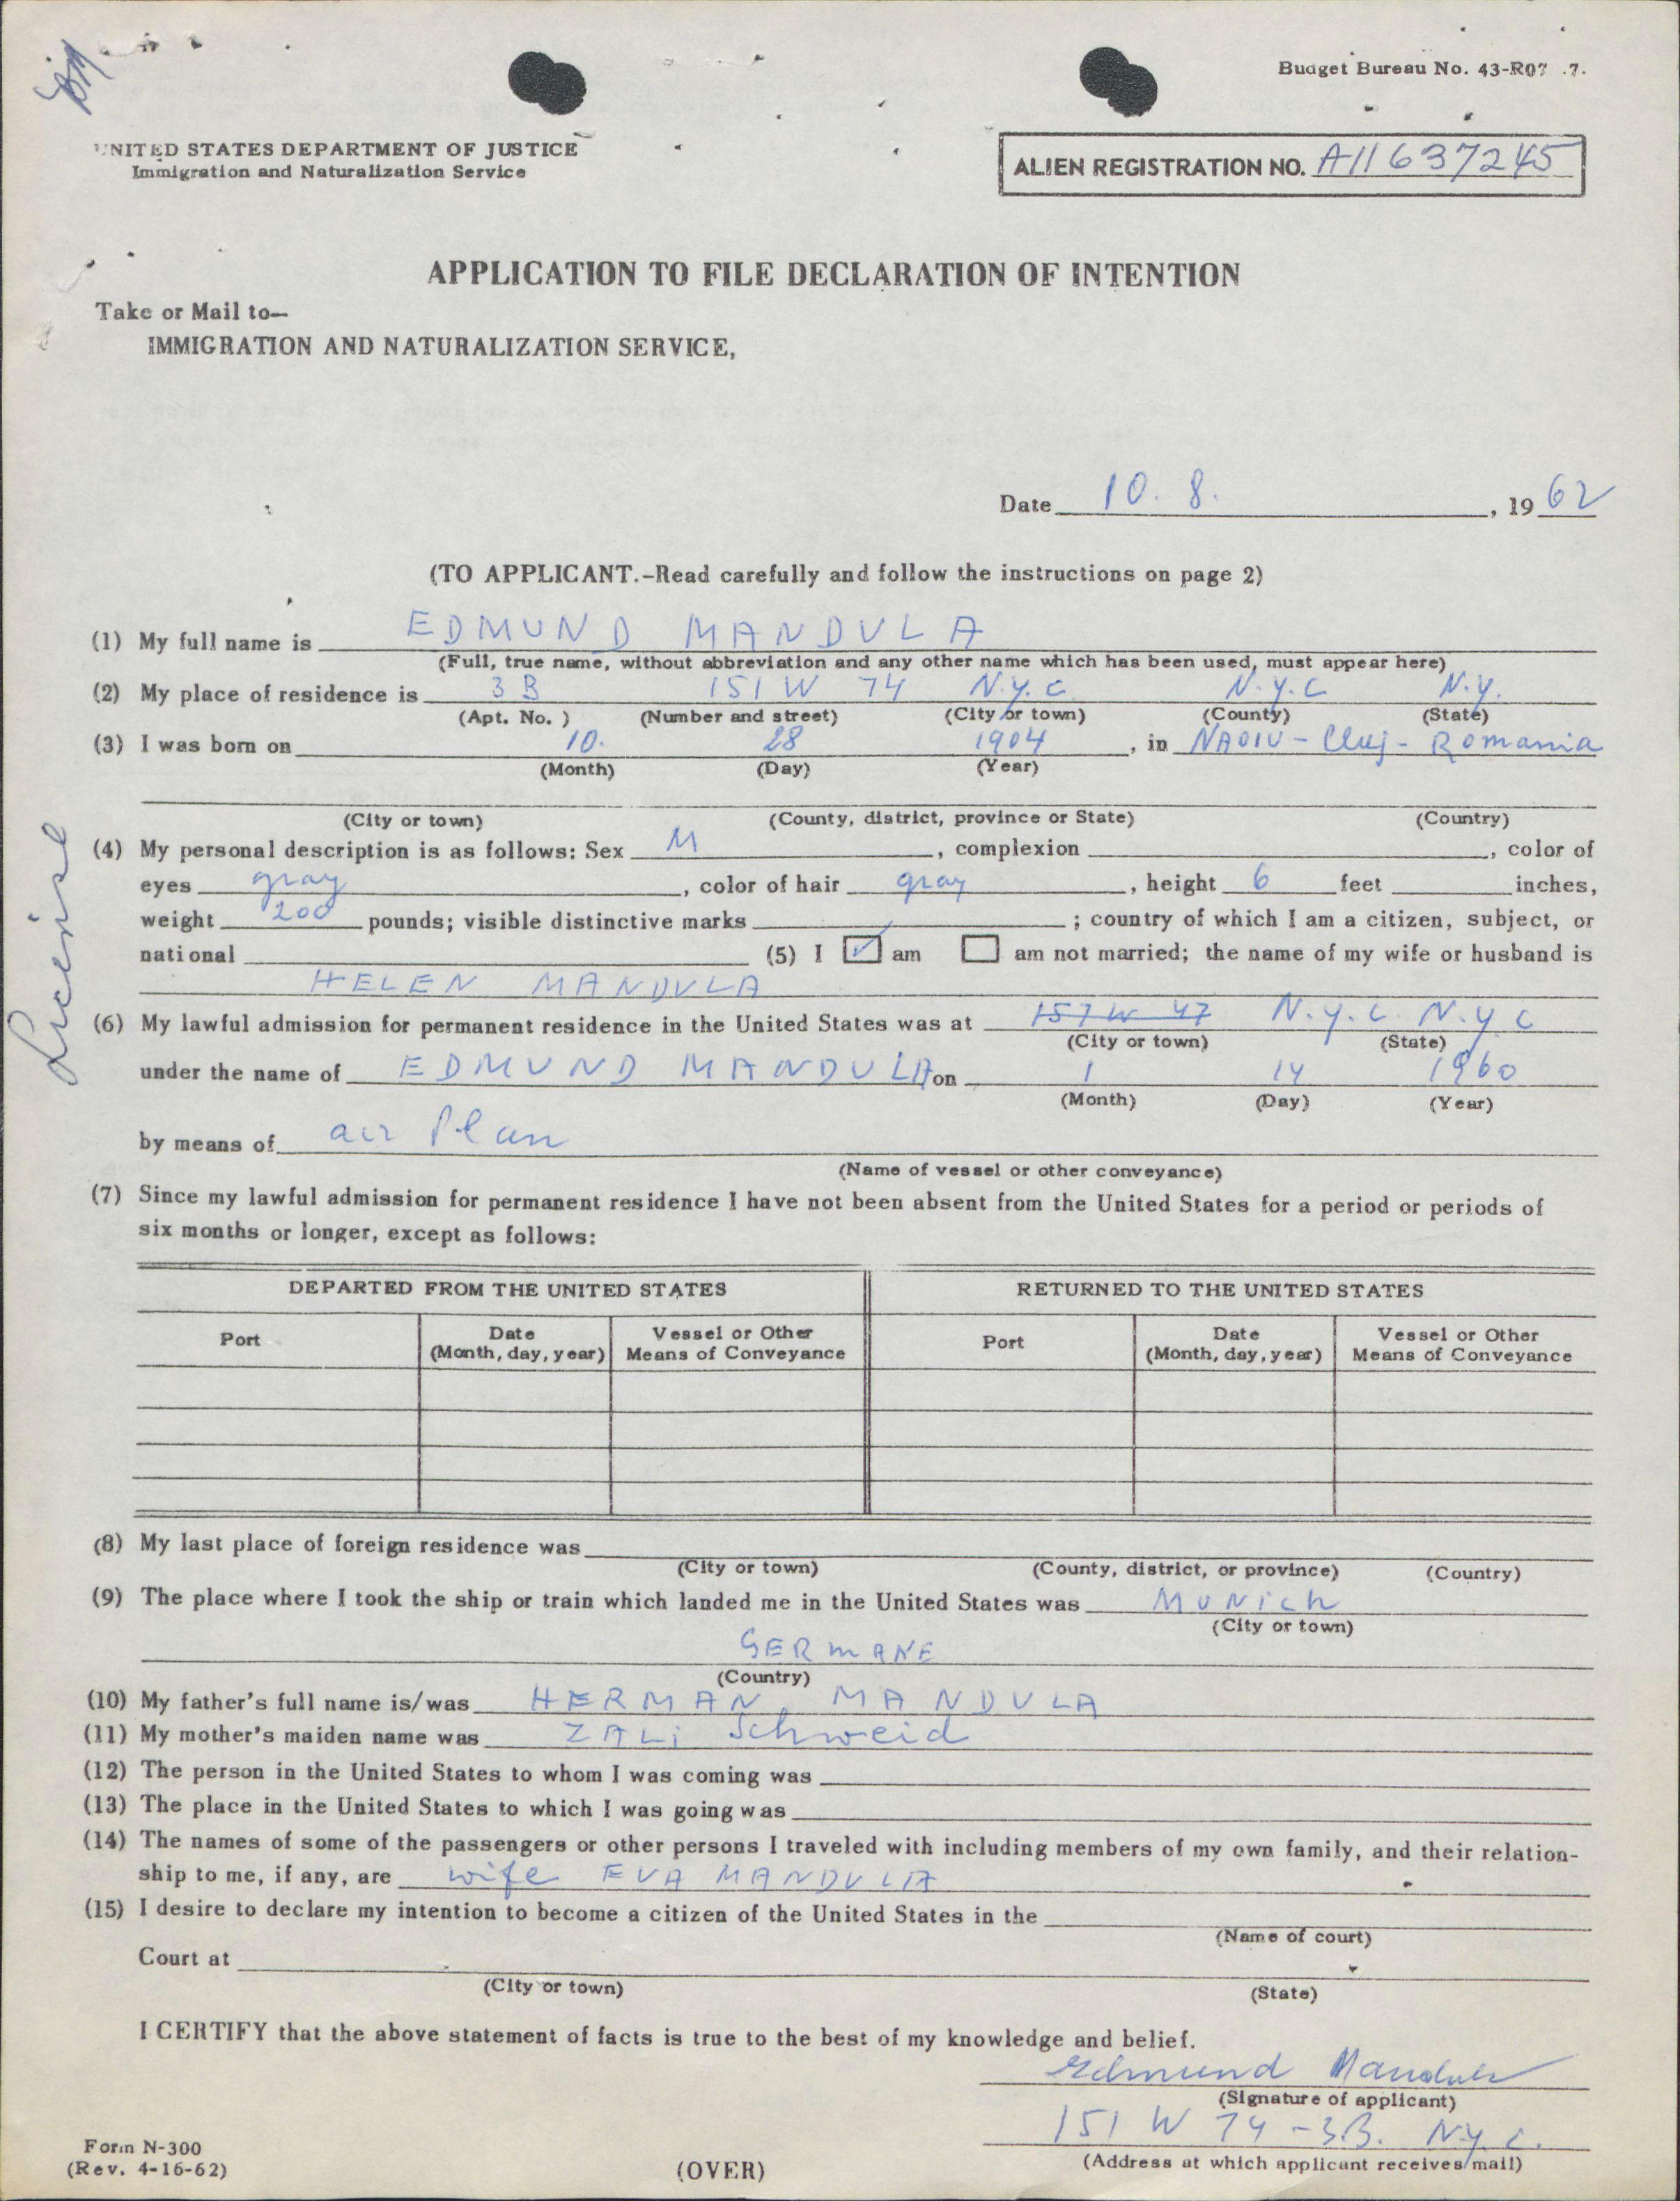 Budget Bureau No. 43-R07 .7.
UNITED STATES DEPARTMENT OF JUSTICE
Immigration and Naturalization Service
ALIEN REGISTRATION NO. A11637245
APPLICATION TO FILE DECLARATION OF INTENTION
Take or Mail to—
IMMIGRATION AND NATURALIZATION SERVICE,
Date 10. 8. , 19 62
(TO APPLICANT.-Read carefully and follow the instructions on page 2)
(1) My full name is EDMUND MANDULA
(Full, true name, without abbreviation and any other name which has been used, must appear here)
(2) My place of residence is 3B 151 W 74 N.Y.C N.Y.C N.Y.
(Apt. No. ) (Number and street) (City or town) (County) (State)
(3) I was born on 10. 28 1904 , in NAOIU - Cluj - Romania
(Month) (Day) (Year)
(City or town) (County, district, province or State) (Country)
(4) My personal description is as follows: Sex M , complexion , color of
eyes gray , color of hair gray , height 6 feet inches,
weight 200 pounds; visible distinctive marks ; country of which I am a citizen, subject, or
national (5) I ✓ am am not married; the name of my wife or husband is
HELEN MANDULA
(6) My lawful admission for permanent residence in the United States was at 157 W 47 N.Y.C. N.Y C
(City or town) (State)
under the name of EDMUND MANDULA on 1 14 1960
(Month) (Day) (Year)
by means of air Plan
(Name of vessel or other conveyance)
(7) Since my lawful admission for permanent residence I have not been absent from the United States for a period or periods of
six months or longer, except as follows:
DEPARTED FROM THE UNITED STATES RETURNED TO THE UNITED STATES
Port Date (Month, day, year) Vessel or Other Means of Conveyance Port Date (Month, day, year) Vessel or Other Means of Conveyance
(8) My last place of foreign residence was
(City or town) (County, district, or province) (Country)
(9) The place where I took the ship or train which landed me in the United States was MUNich
(City or town)
GERMANE
(Country)
(10) My father's full name is/was HERMAN MANDULA
(11) My mother's maiden name was ZALi Schweid
(12) The person in the United States to whom I was coming was
(13) The place in the United States to which I was going was
(14) The names of some of the passengers or other persons I traveled with including members of my own family, and their relation-
ship to me, if any, are wife EVA MANDULA
(15) I desire to declare my intention to become a citizen of the United States in the
(Name of court)
Court at
(City or town) (State)
I CERTIFY that the above statement of facts is true to the best of my knowledge and belief.
Edmund Mandula
(Signature of applicant)
151 W 74 - 3B. N.Y.C.
(Address at which applicant receives mail)
Form N-300
(Rev. 4-16-62)
(OVER)